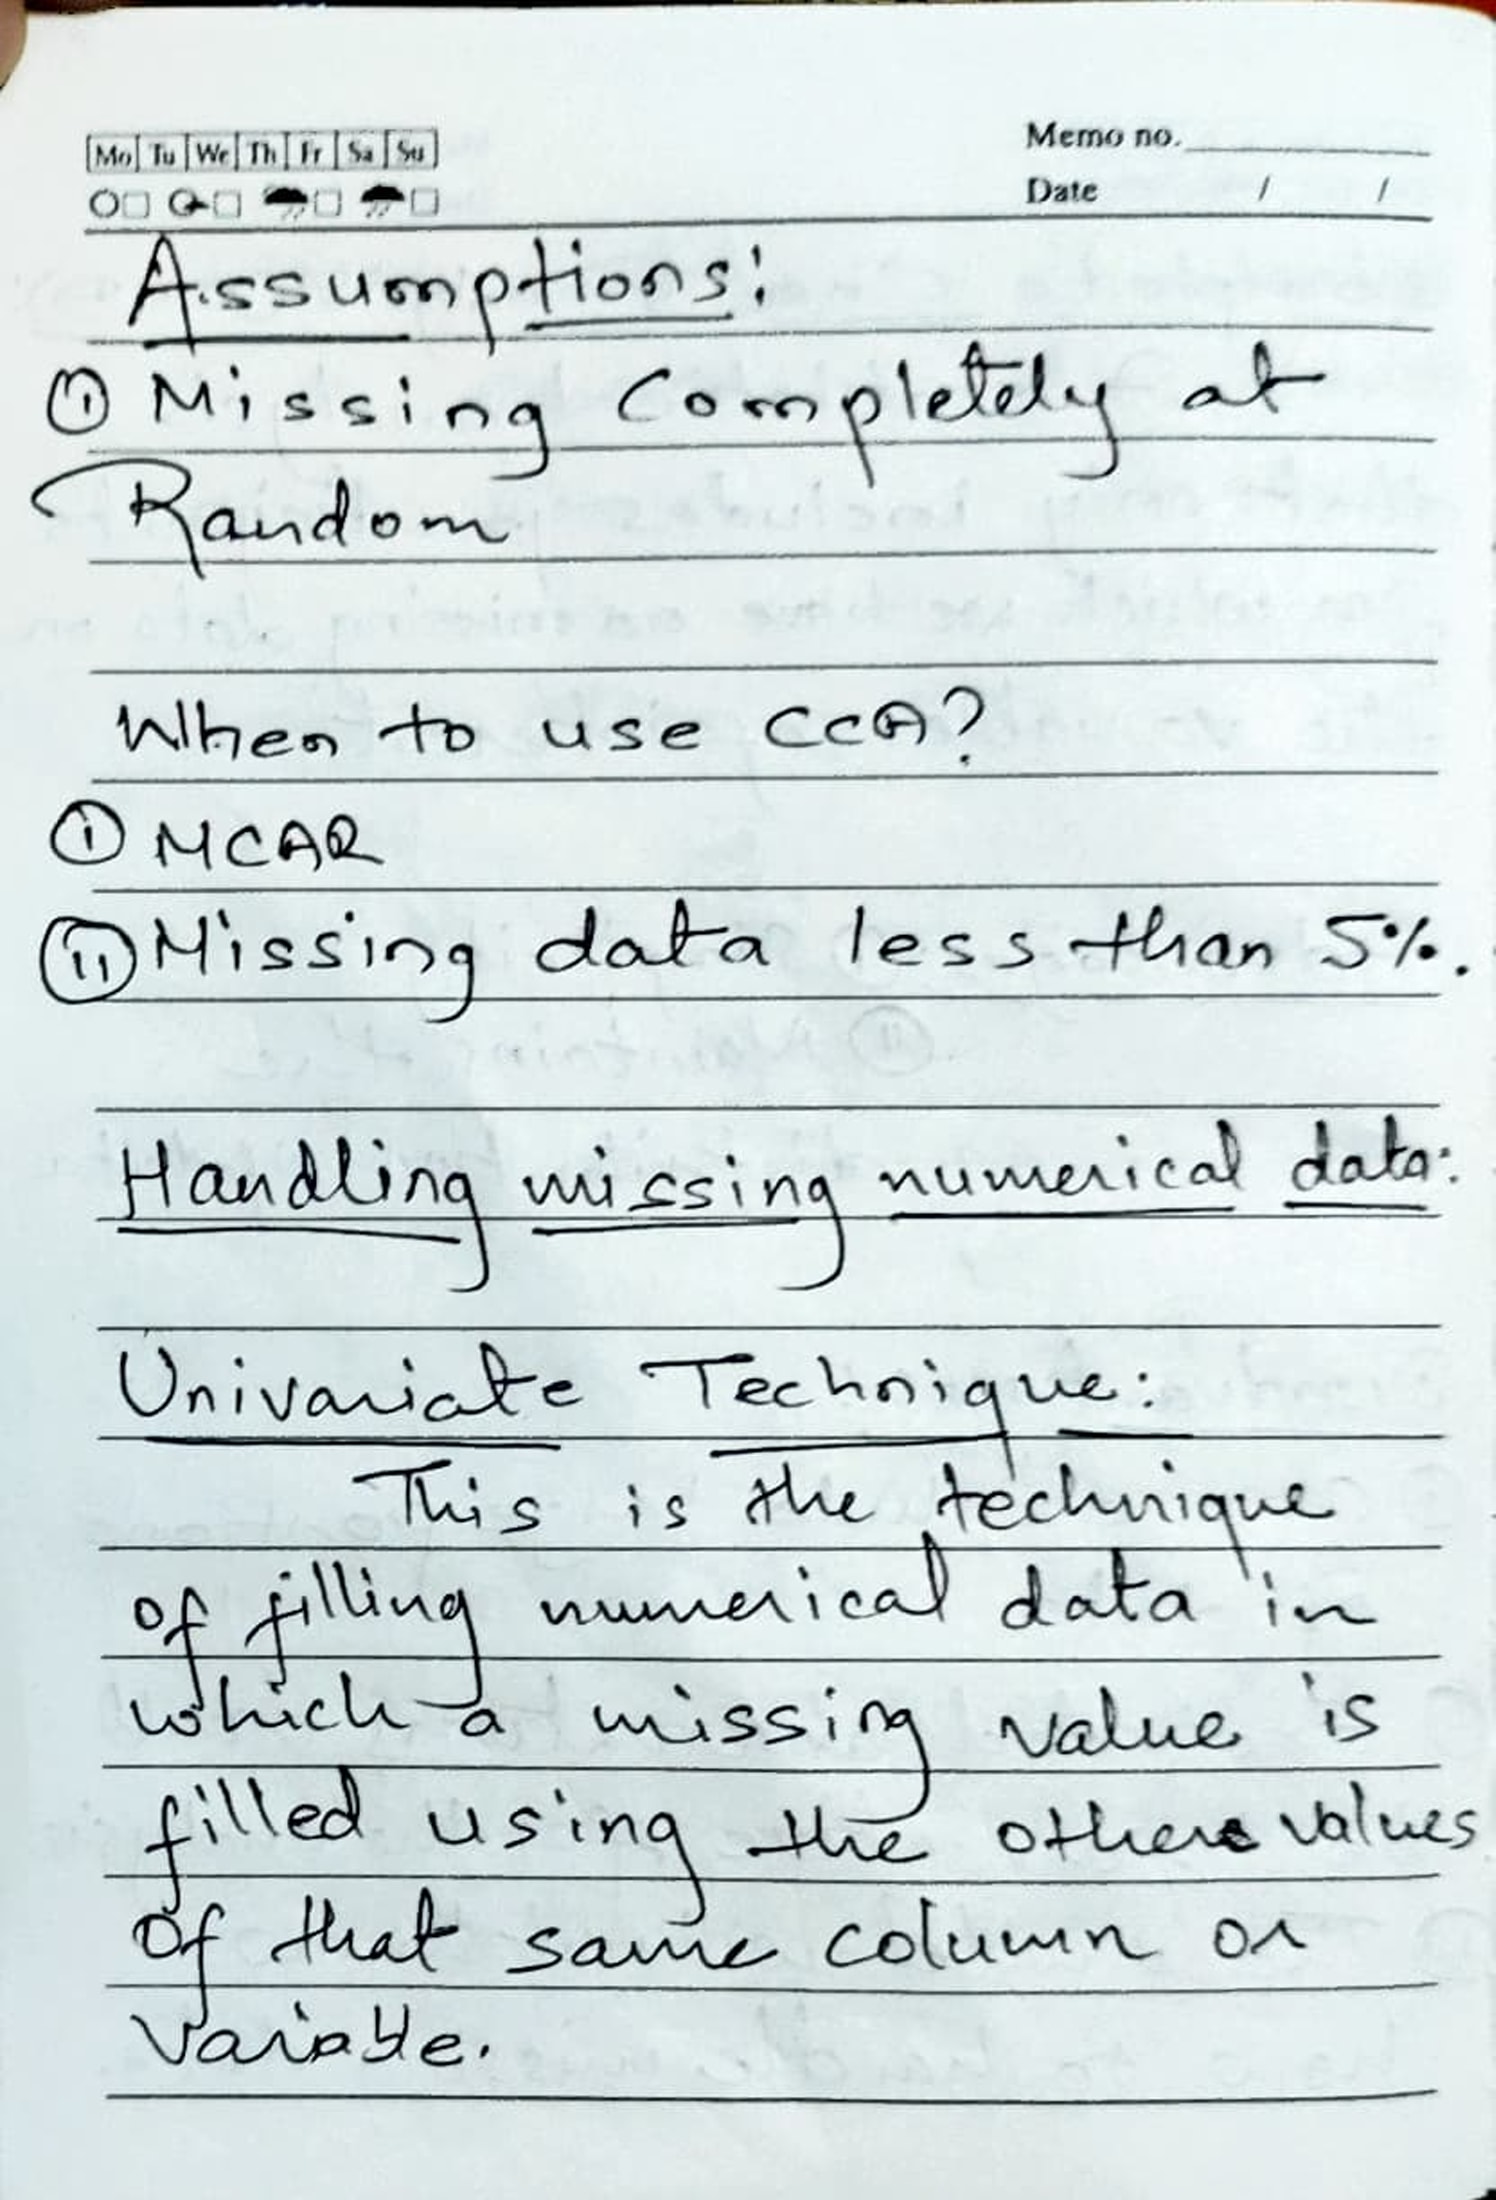 Mo Tu We Th Fr Sa Su
Memo no.
Date / /
Assumptions:
① Missing Completely at
Random
When to use CCA?
① MCAR
ⓘⓘ Missing data less than 5%.
Handling missing numerical data:
Univariate Technique:
This is the technique
of filling numerical data in
which a missing value is
filled using the other values
of that same column or
variable.